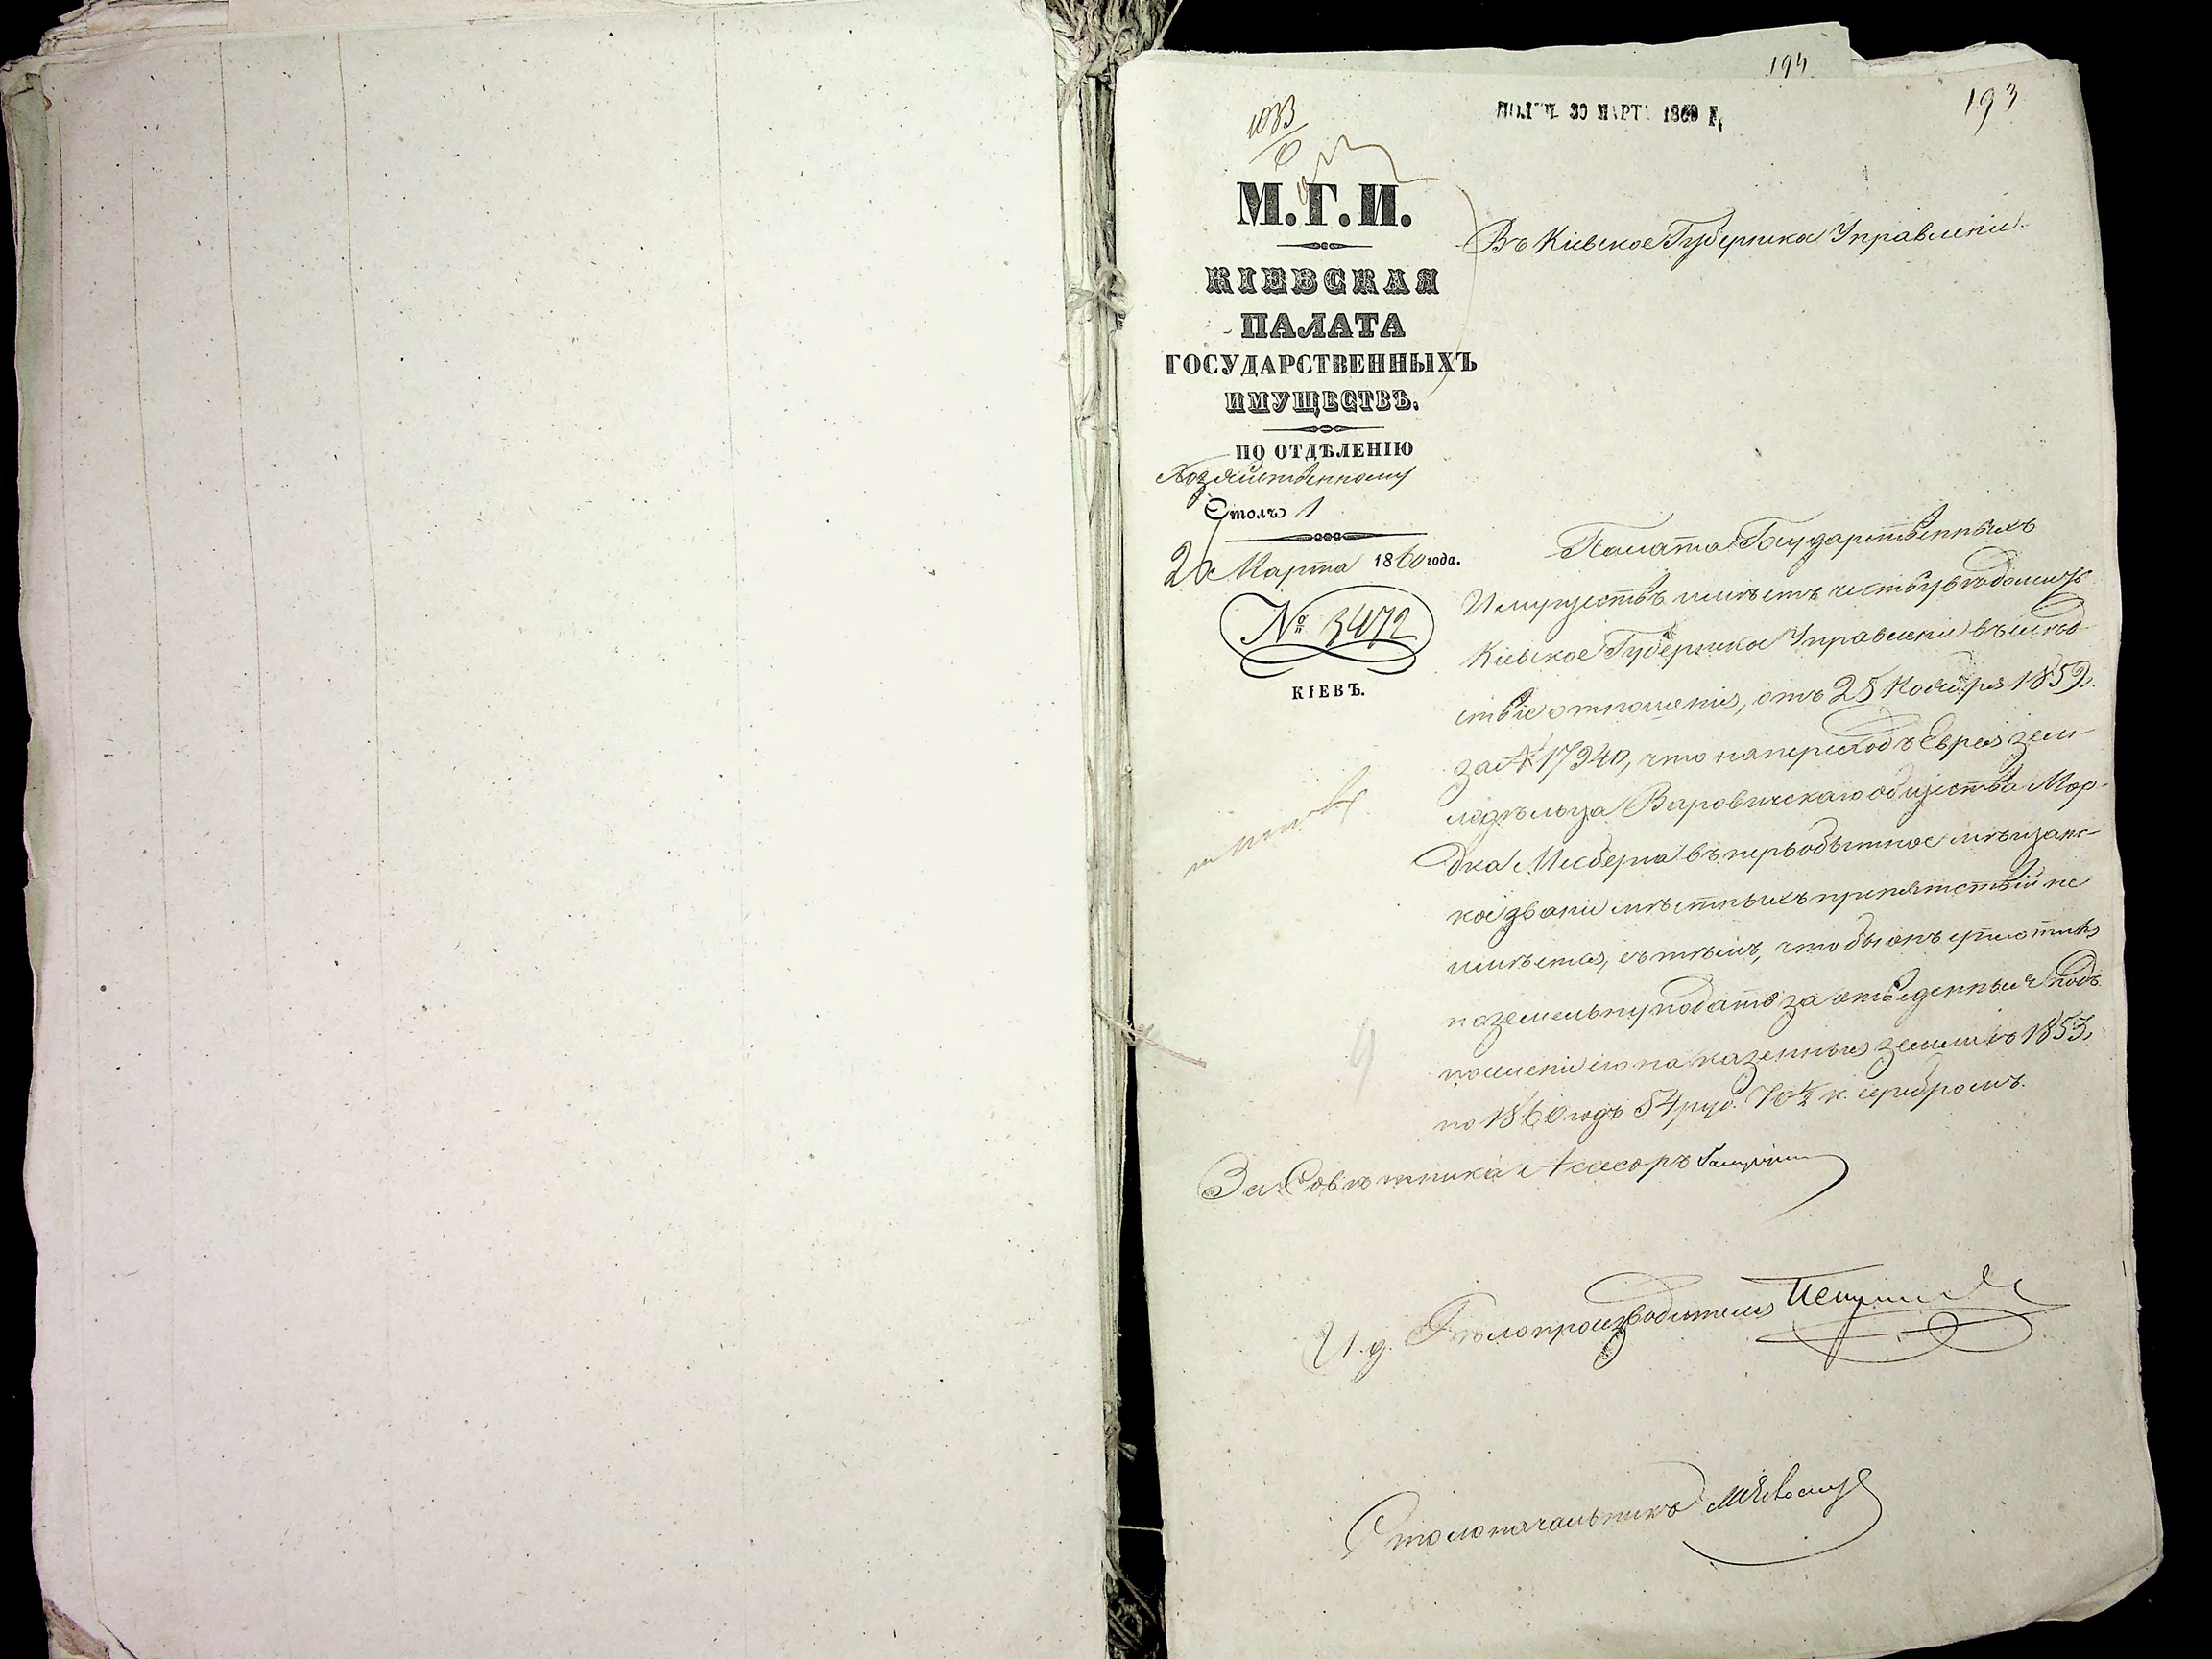 194
193
1033
ПОЛУЧ. 30 МАРТА 1860 Г.
М.Г.И.
КІЕВСКАЯ
ПАЛАТА
ГОСУДАРСТВЕННЫХЪ
ИМУЩЕСТВЪ.
ПО ОТДѢЛЕНІЮ
Хозяйственному
Столъ 1
Марта 1860 года.
№ 3472
КІЕВЪ.
Въ Кіевское Губернское Управленіе.
Палата Государственныхъ
Имуществъ имѣетъ честь увѣдомить
Кіевское Губернское Управленіе въ слѣд-
ствіе отношенія, отъ 25 Ноября 1859 г.
за № 17940, что на переходъ Еврея земле-
дѣльца Варовичскаго общества Мор-
дка Мисберга въ первобытное мѣщанс-
кое званіе мѣстныхъ препятствій не
имѣется, съ тѣмъ, чтобы онъ уплотилъ
поземельную подать за отведенный подъ
поселеніе его на казенныхъ земляхъ съ 1853,
по 1860 годъ 54 руб. 76½ к. серебромъ.
За Совѣтника Асесоръ
И. д. Дѣлопроизводителя
Столоначальникъ